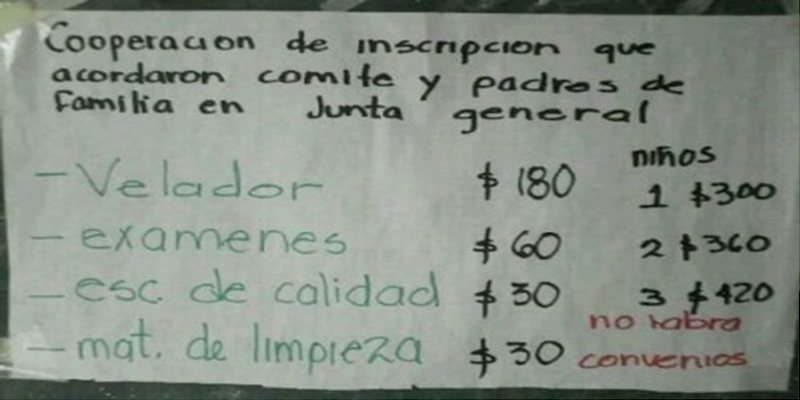 Cooperacion de inscripcion que
acordaron comite y padres de
familia en Junta general
niños
- Velador $ 180 1 $300
- examenes $ 60 2 $360
- esc. de calidad $ 30 3 $420
no habra
- mat. de limpieza $ 30 convenios